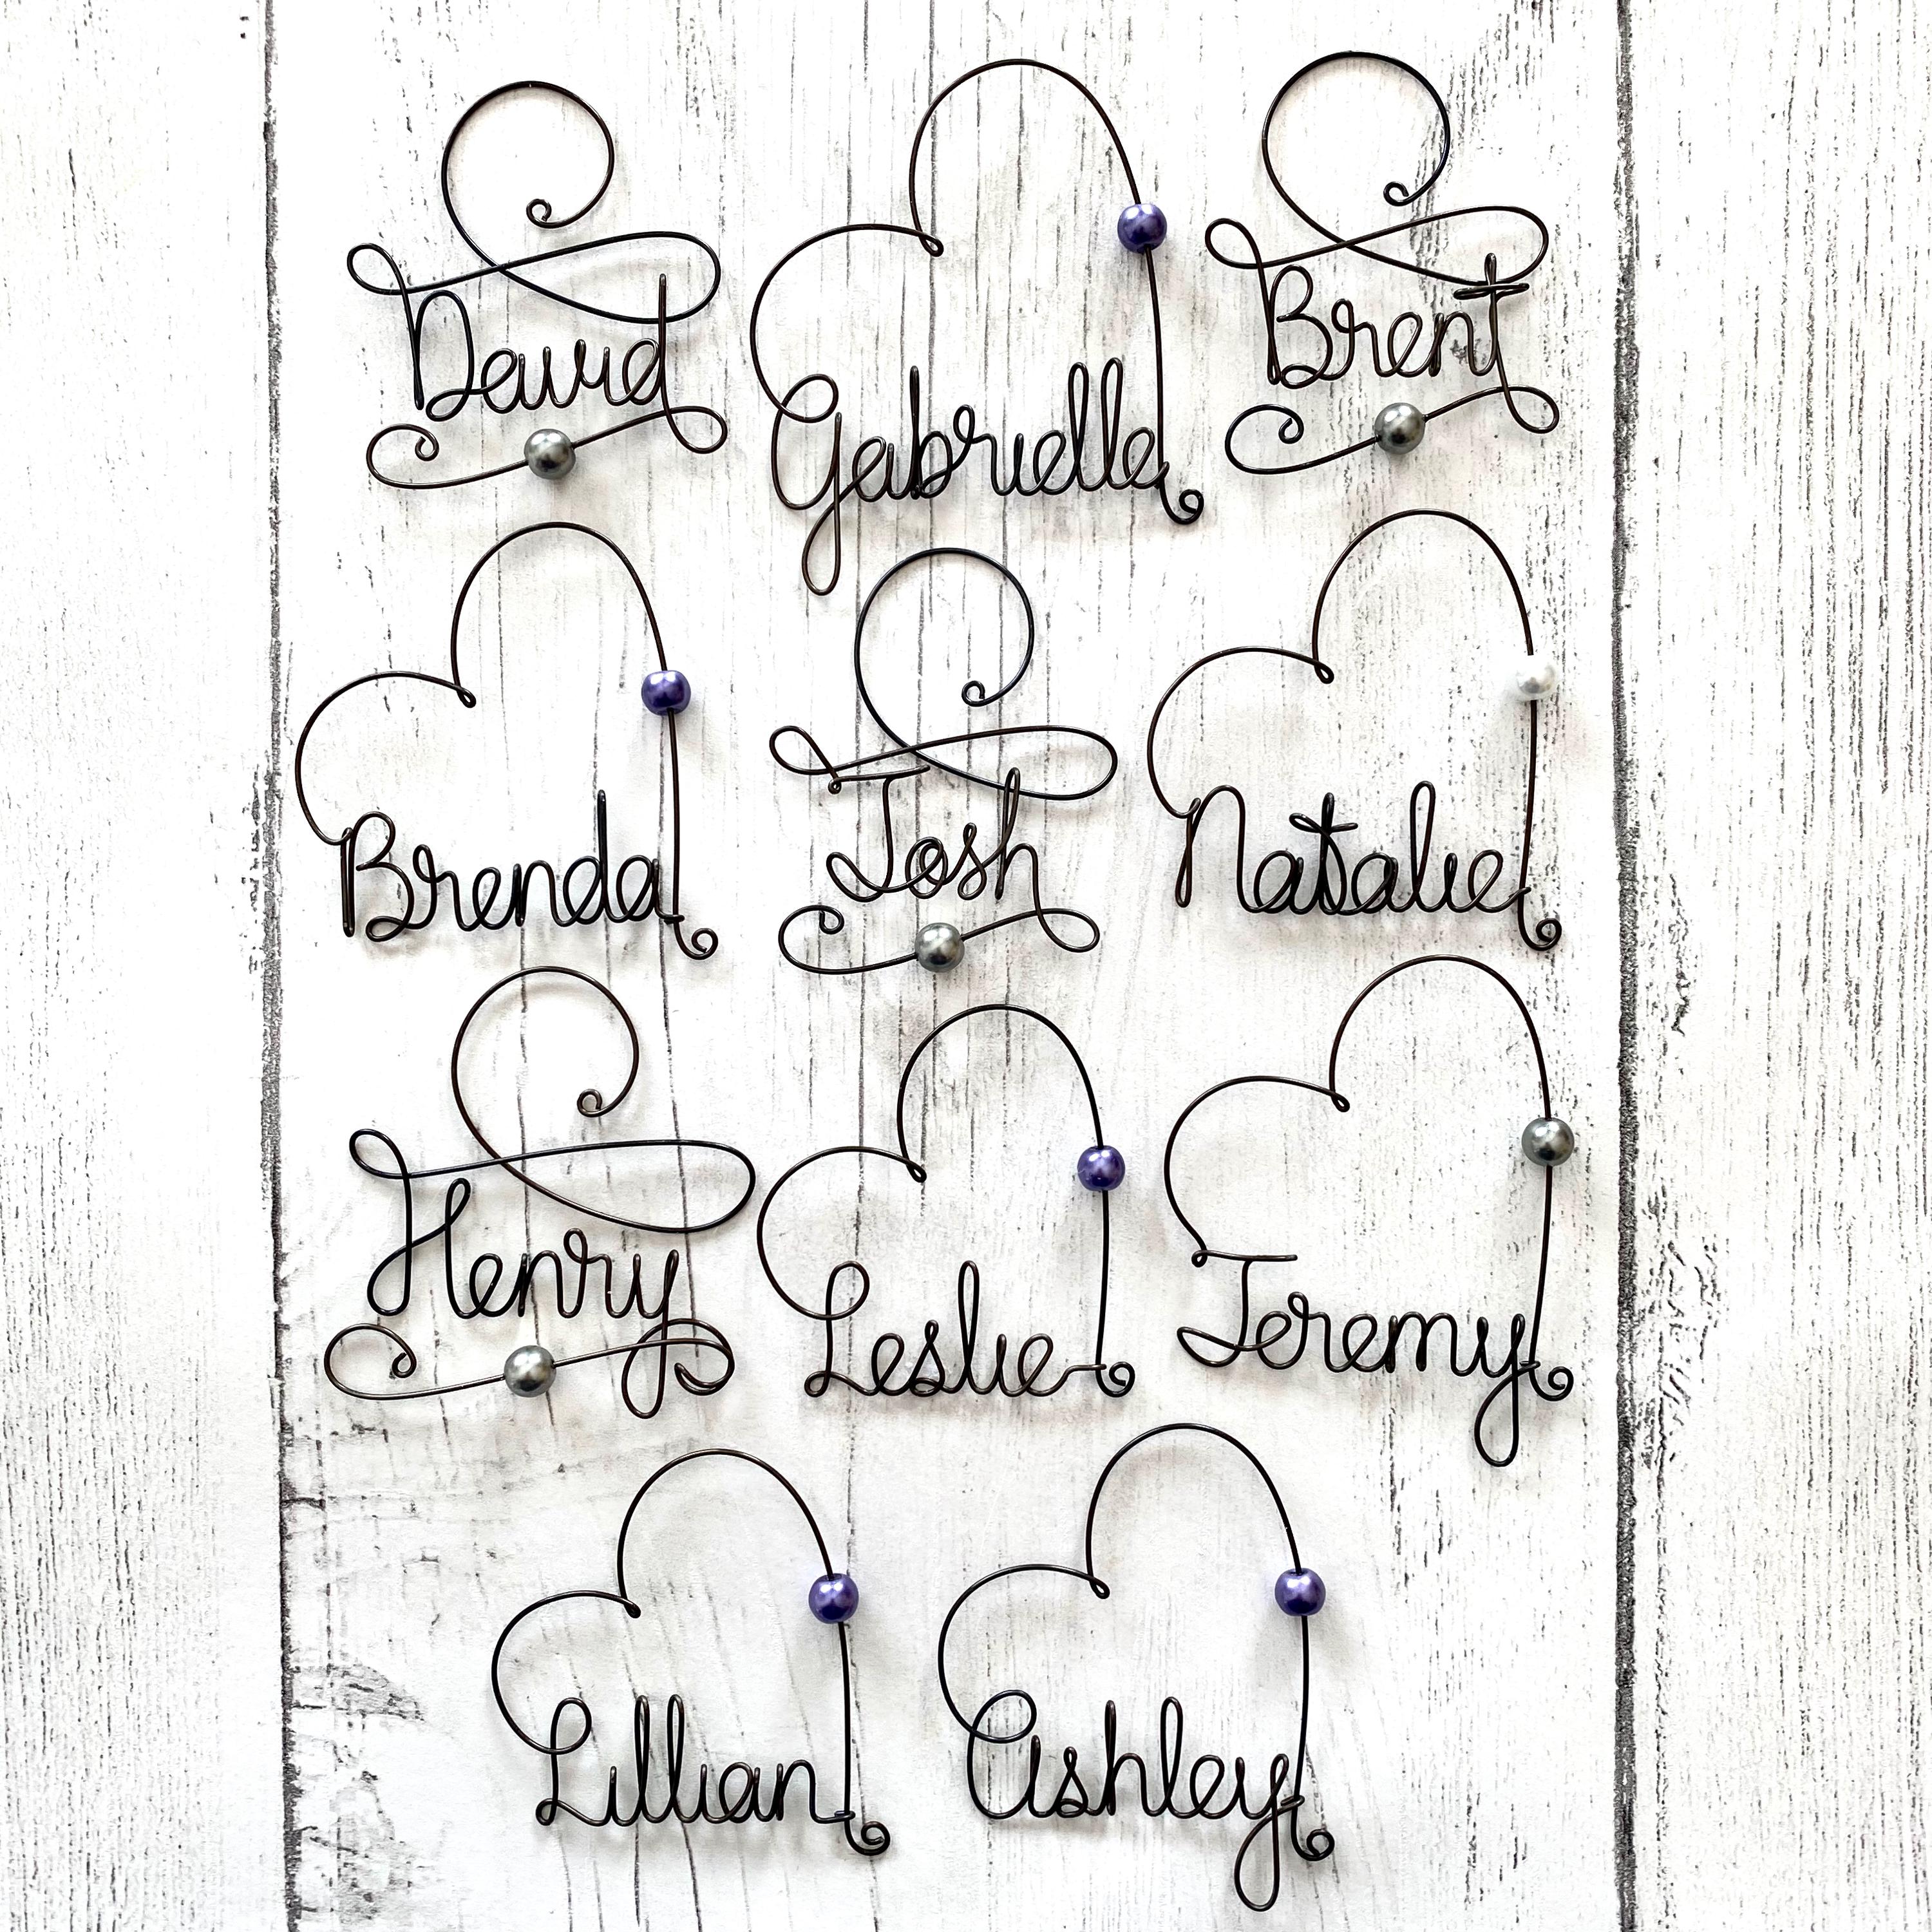 David
Gabrielle
Brent
Brenda
Josh
Natalie
Henry
Leslie
Jeremy
Lillian
Ashley